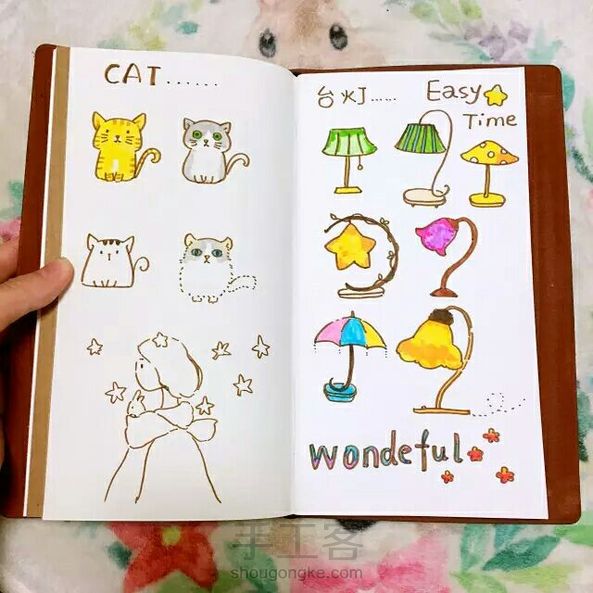 CAT......
台灯......
Easy
Time
wondeful
手工客
shougongke.com